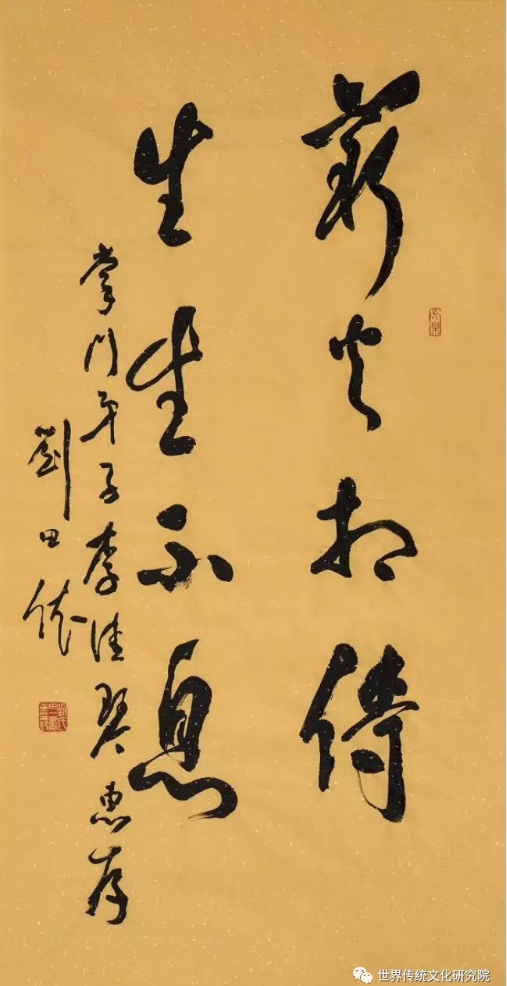 薪火相傳
生生不息
掌门弟子李佳琴惠存
劉田依
世界传统文化研究院